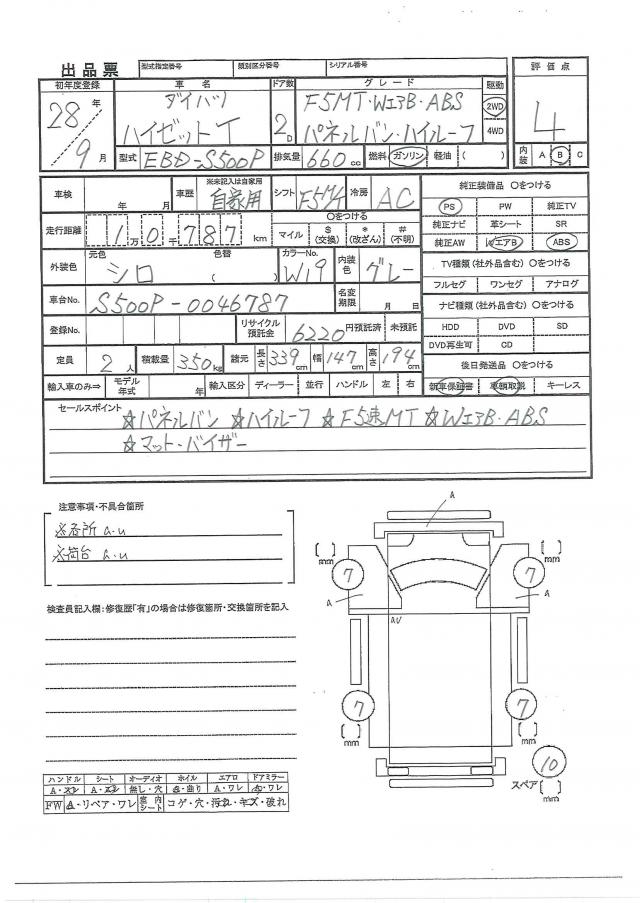 出品票 型式指定番号 類別区分番号 シリアル番号
初年度登録 車名 ドア数 グレード 駆動 評価点
28年 ダイハツ 2D F5MT・WエアB・ABS 2WD 4
9月 ハイゼットT パネルバン・ハイルーフ 4WD
型式 EBD-S500P 排気量 660cc 燃料 ガソリン・軽油・( ) 内装 A B C
車検 年 月 車歴 ※未記入は自家用 自家用 シフト F5MT 冷房 AC 純正装備品 〇をつける
PS PW 純正TV
走行距離 1万0千787km 〇をつける マイル $(交換) *(改ざん) #(不明) 純正ナビ 革シート SR
純正AW エアB ABS
外装色 元色 シロ 色替 ( ) カラーNo. W19 内装色 グレー TV種類(社外品含む)〇をつける
フルセグ ワンセグ アナログ
車台No. S500P-0046787 名変期限 月 日 ナビ種類(社外品含む)〇をつける
登録No. リサイクル預託金 6220円預託済 未預託 HDD DVD SD
DVD再生可 CD
定員 2人 積載量 350kg 諸元 長さ339cm 幅147cm 高さ194cm 後日発送品 〇をつける
輸入車のみ⇒ モデル年式 年 輸入区分 ディーラー・並行 ハンドル 左・右 新車保証書 車輌取説 キーレス
セールスポイント ☆パネルバン ☆ハイルーフ ☆F5速MT ☆WエアB・ABS
☆マット・バイザー
注意事項・不具合箇所
※各所 a.u
※荷台 a.u
検査員記入欄:修復歴「有」の場合は修復箇所・交換箇所を記入
A
[ ] mm [ ] mm
7 7
A A
AU
7 7
[ ] mm [ ] mm
10
スペア [ ] mm
ハンドル シート オーディオ ホイル エアロ ドアミラー
A・スレ A・スレ 無し・穴 A・曲り A・ワレ A・ワレ
FW A・リペア・ワレ 室内シート コゲ・穴・汚れ・キズ・破れ